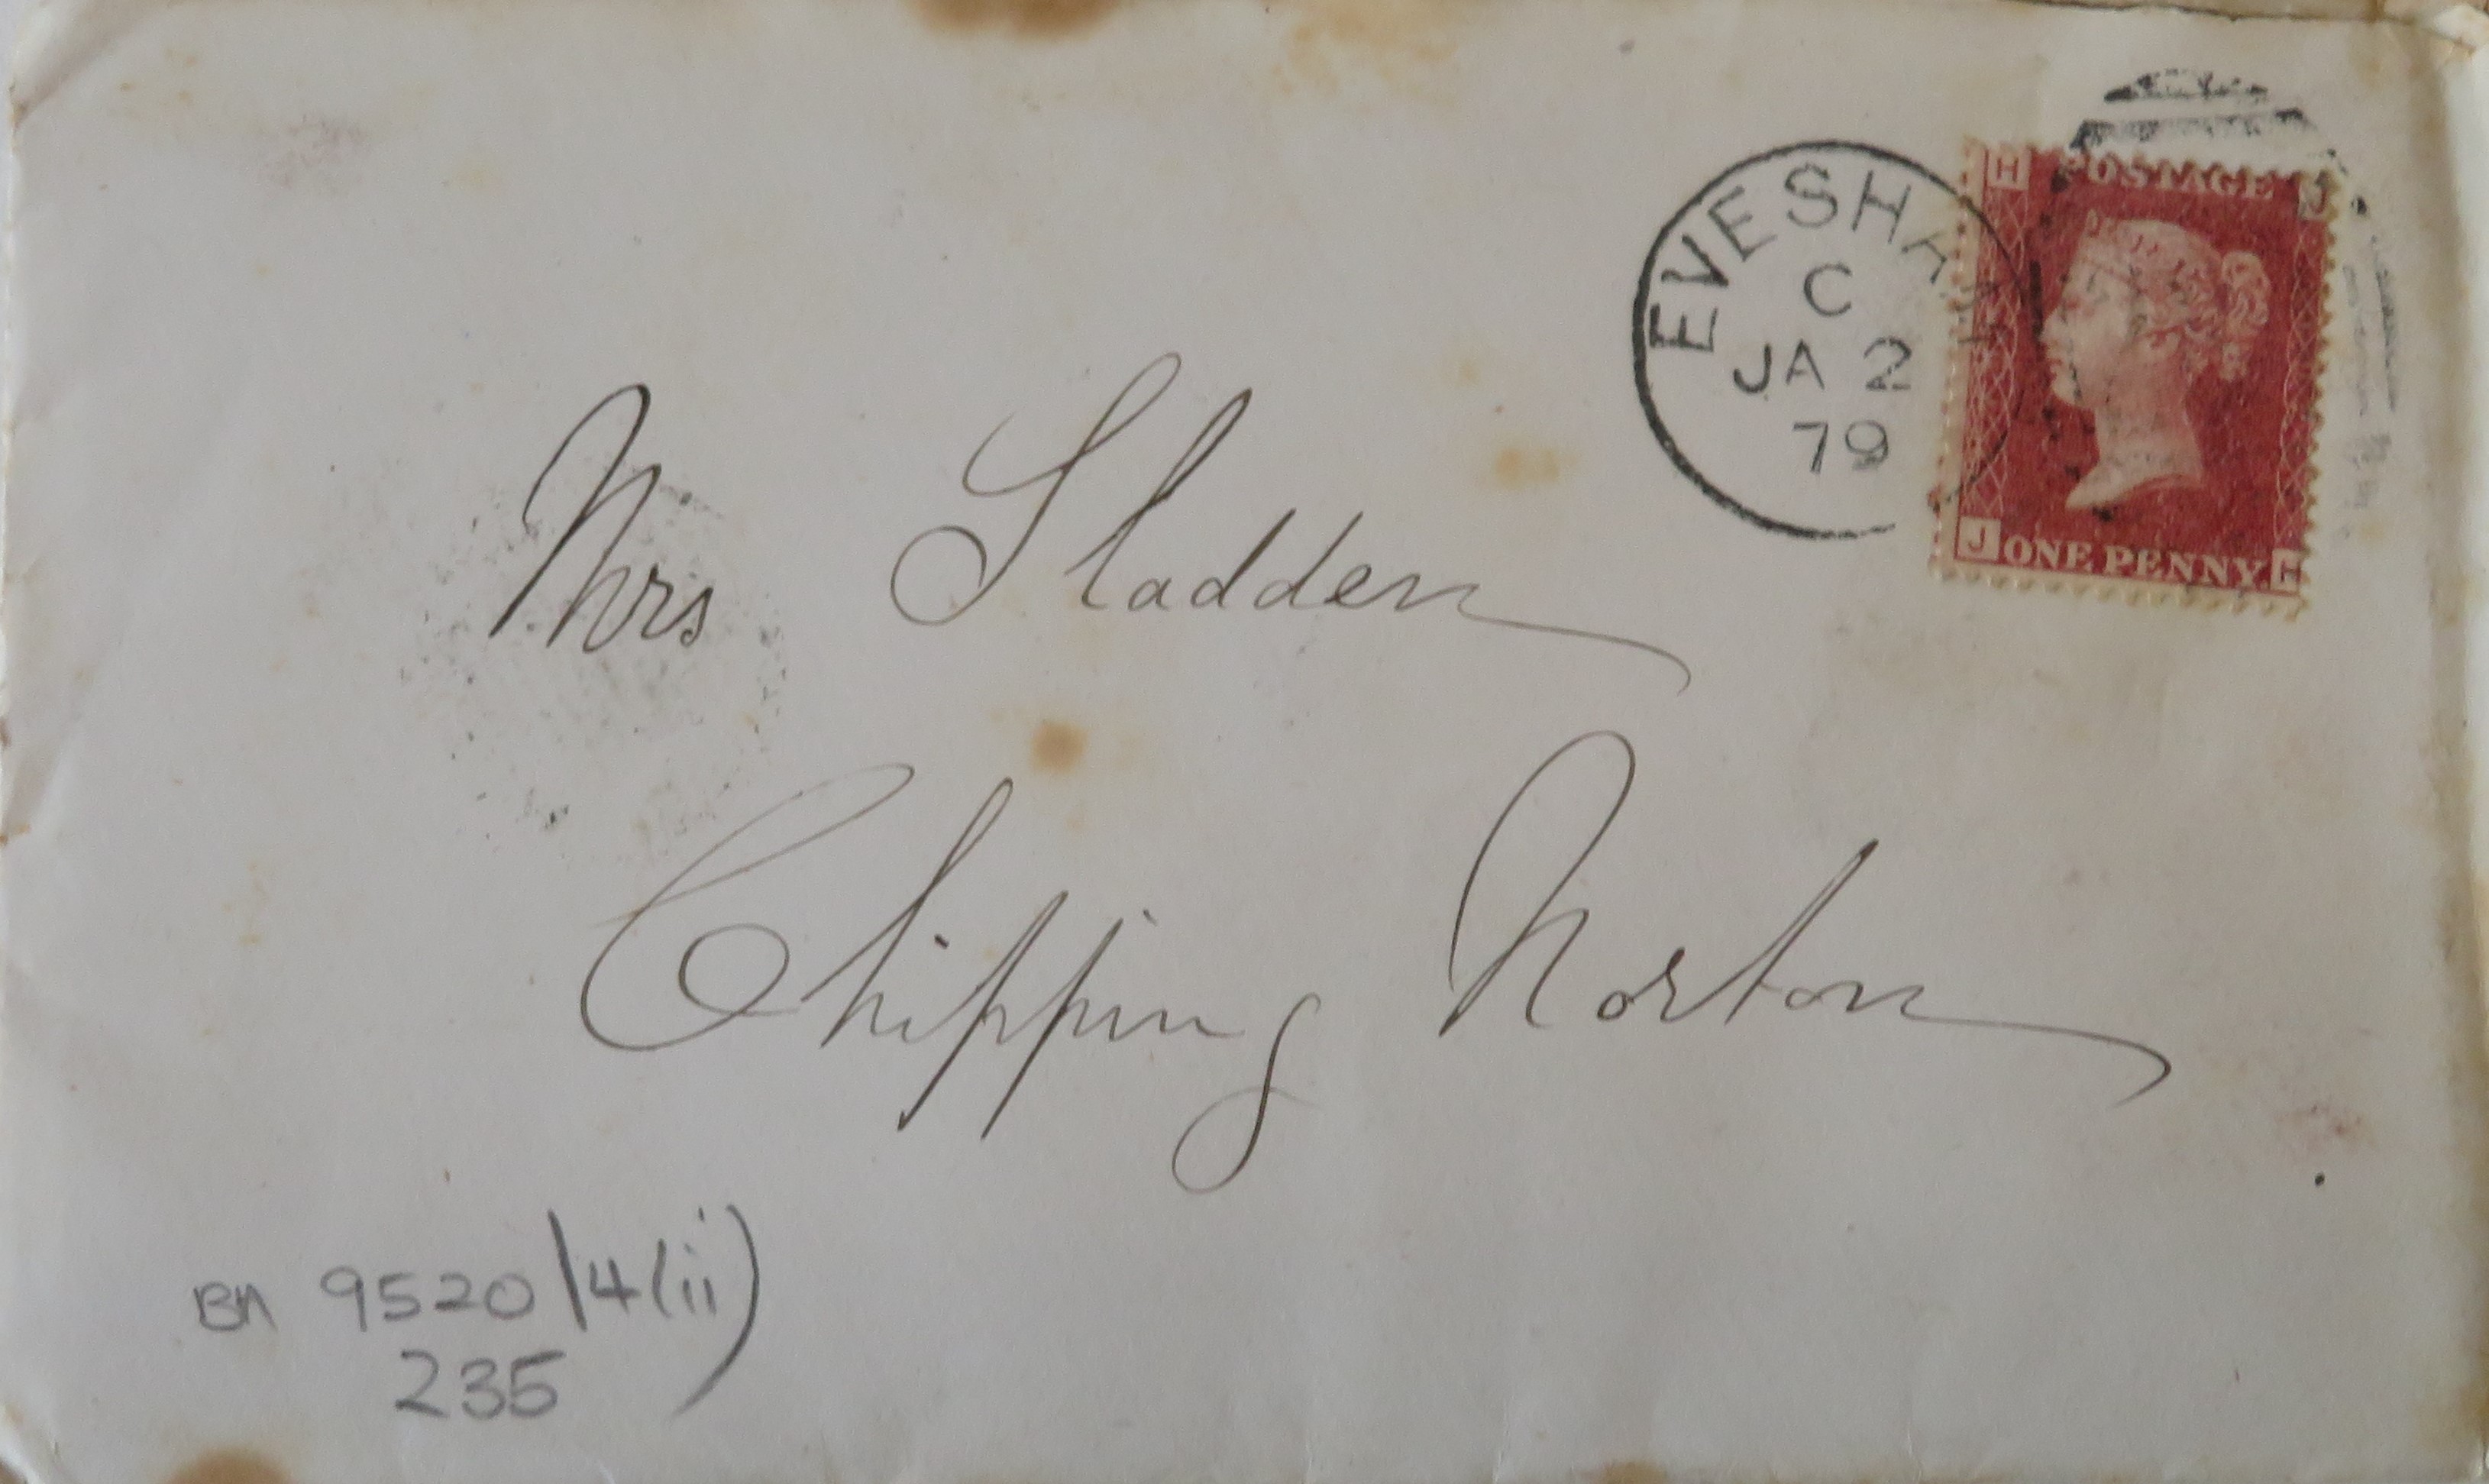 EVESHAM
C
JA 2
79
H POSTAGE J
J ONE PENNY H
Mrs Sladden
Chipping Norton
BA 9520/4(ii)
235